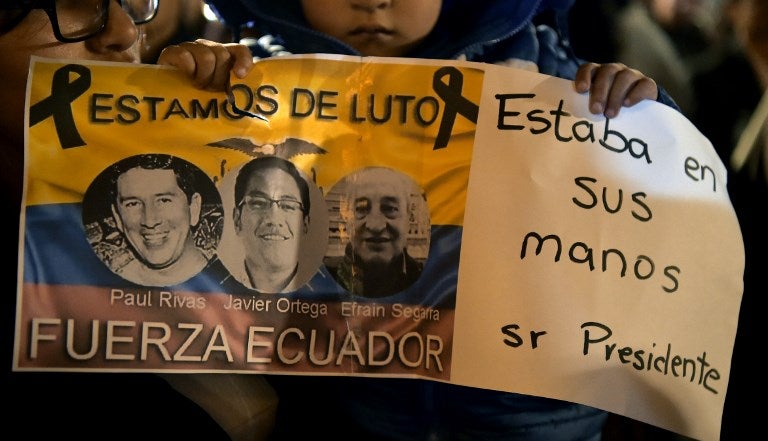 ESTAMOS DE LUTO
Paul Rivas Javier Ortega Efrain Segarra
FUERZA ECUADOR
Estaba en
sus
manos
sr Presidente